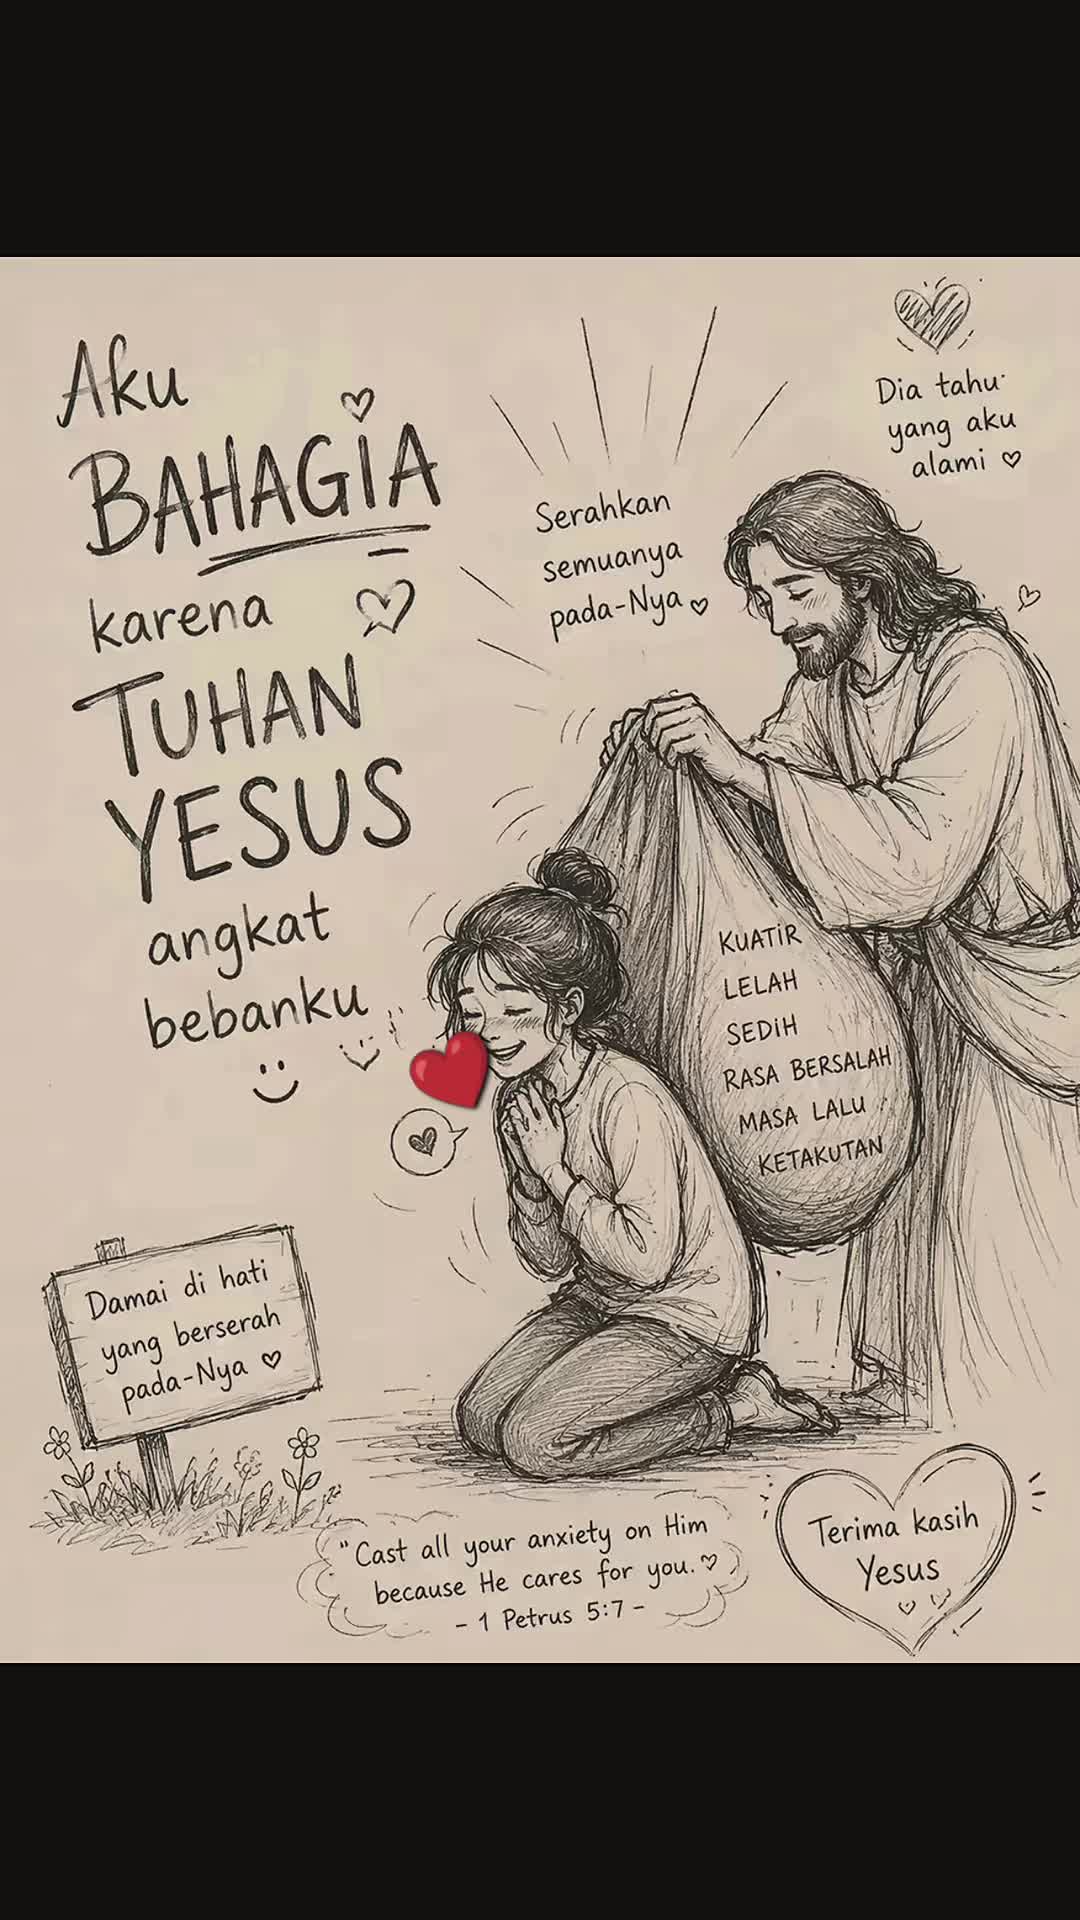 Aku
BAHAGIA
karena
TUHAN
YESUS
angkat
bebanku
Serahkan
semuanya
pada-Nya
Dia tahu
yang aku
alami
KUATIR
LELAH
SEDIH
RASA BERSALAH
MASA LALU
KETAKUTAN
Damai di hati
yang berserah
pada-Nya
"Cast all your anxiety on Him
because He cares for you.
- 1 Petrus 5:7 -
Terima kasih
Yesus